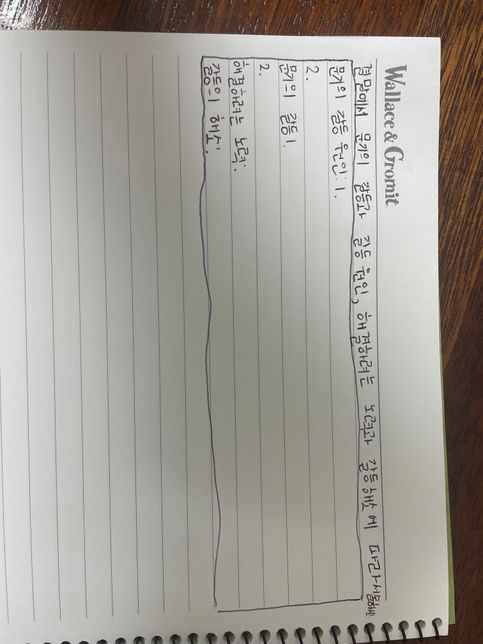 Wallace & Gromit
결말에서 문기의 갈등과 갈등 원인, 해결하려는 노력과 갈등해소에 따라 서술하는
문기의 갈등 원인: 1.
2.
문기의 갈등 1.
2.
해결하려는 노력:
갈등의 해소: